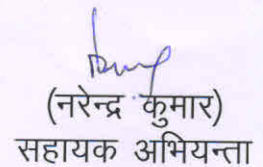 (नरेन्द्र कुमार)
सहायक अभियन्ता